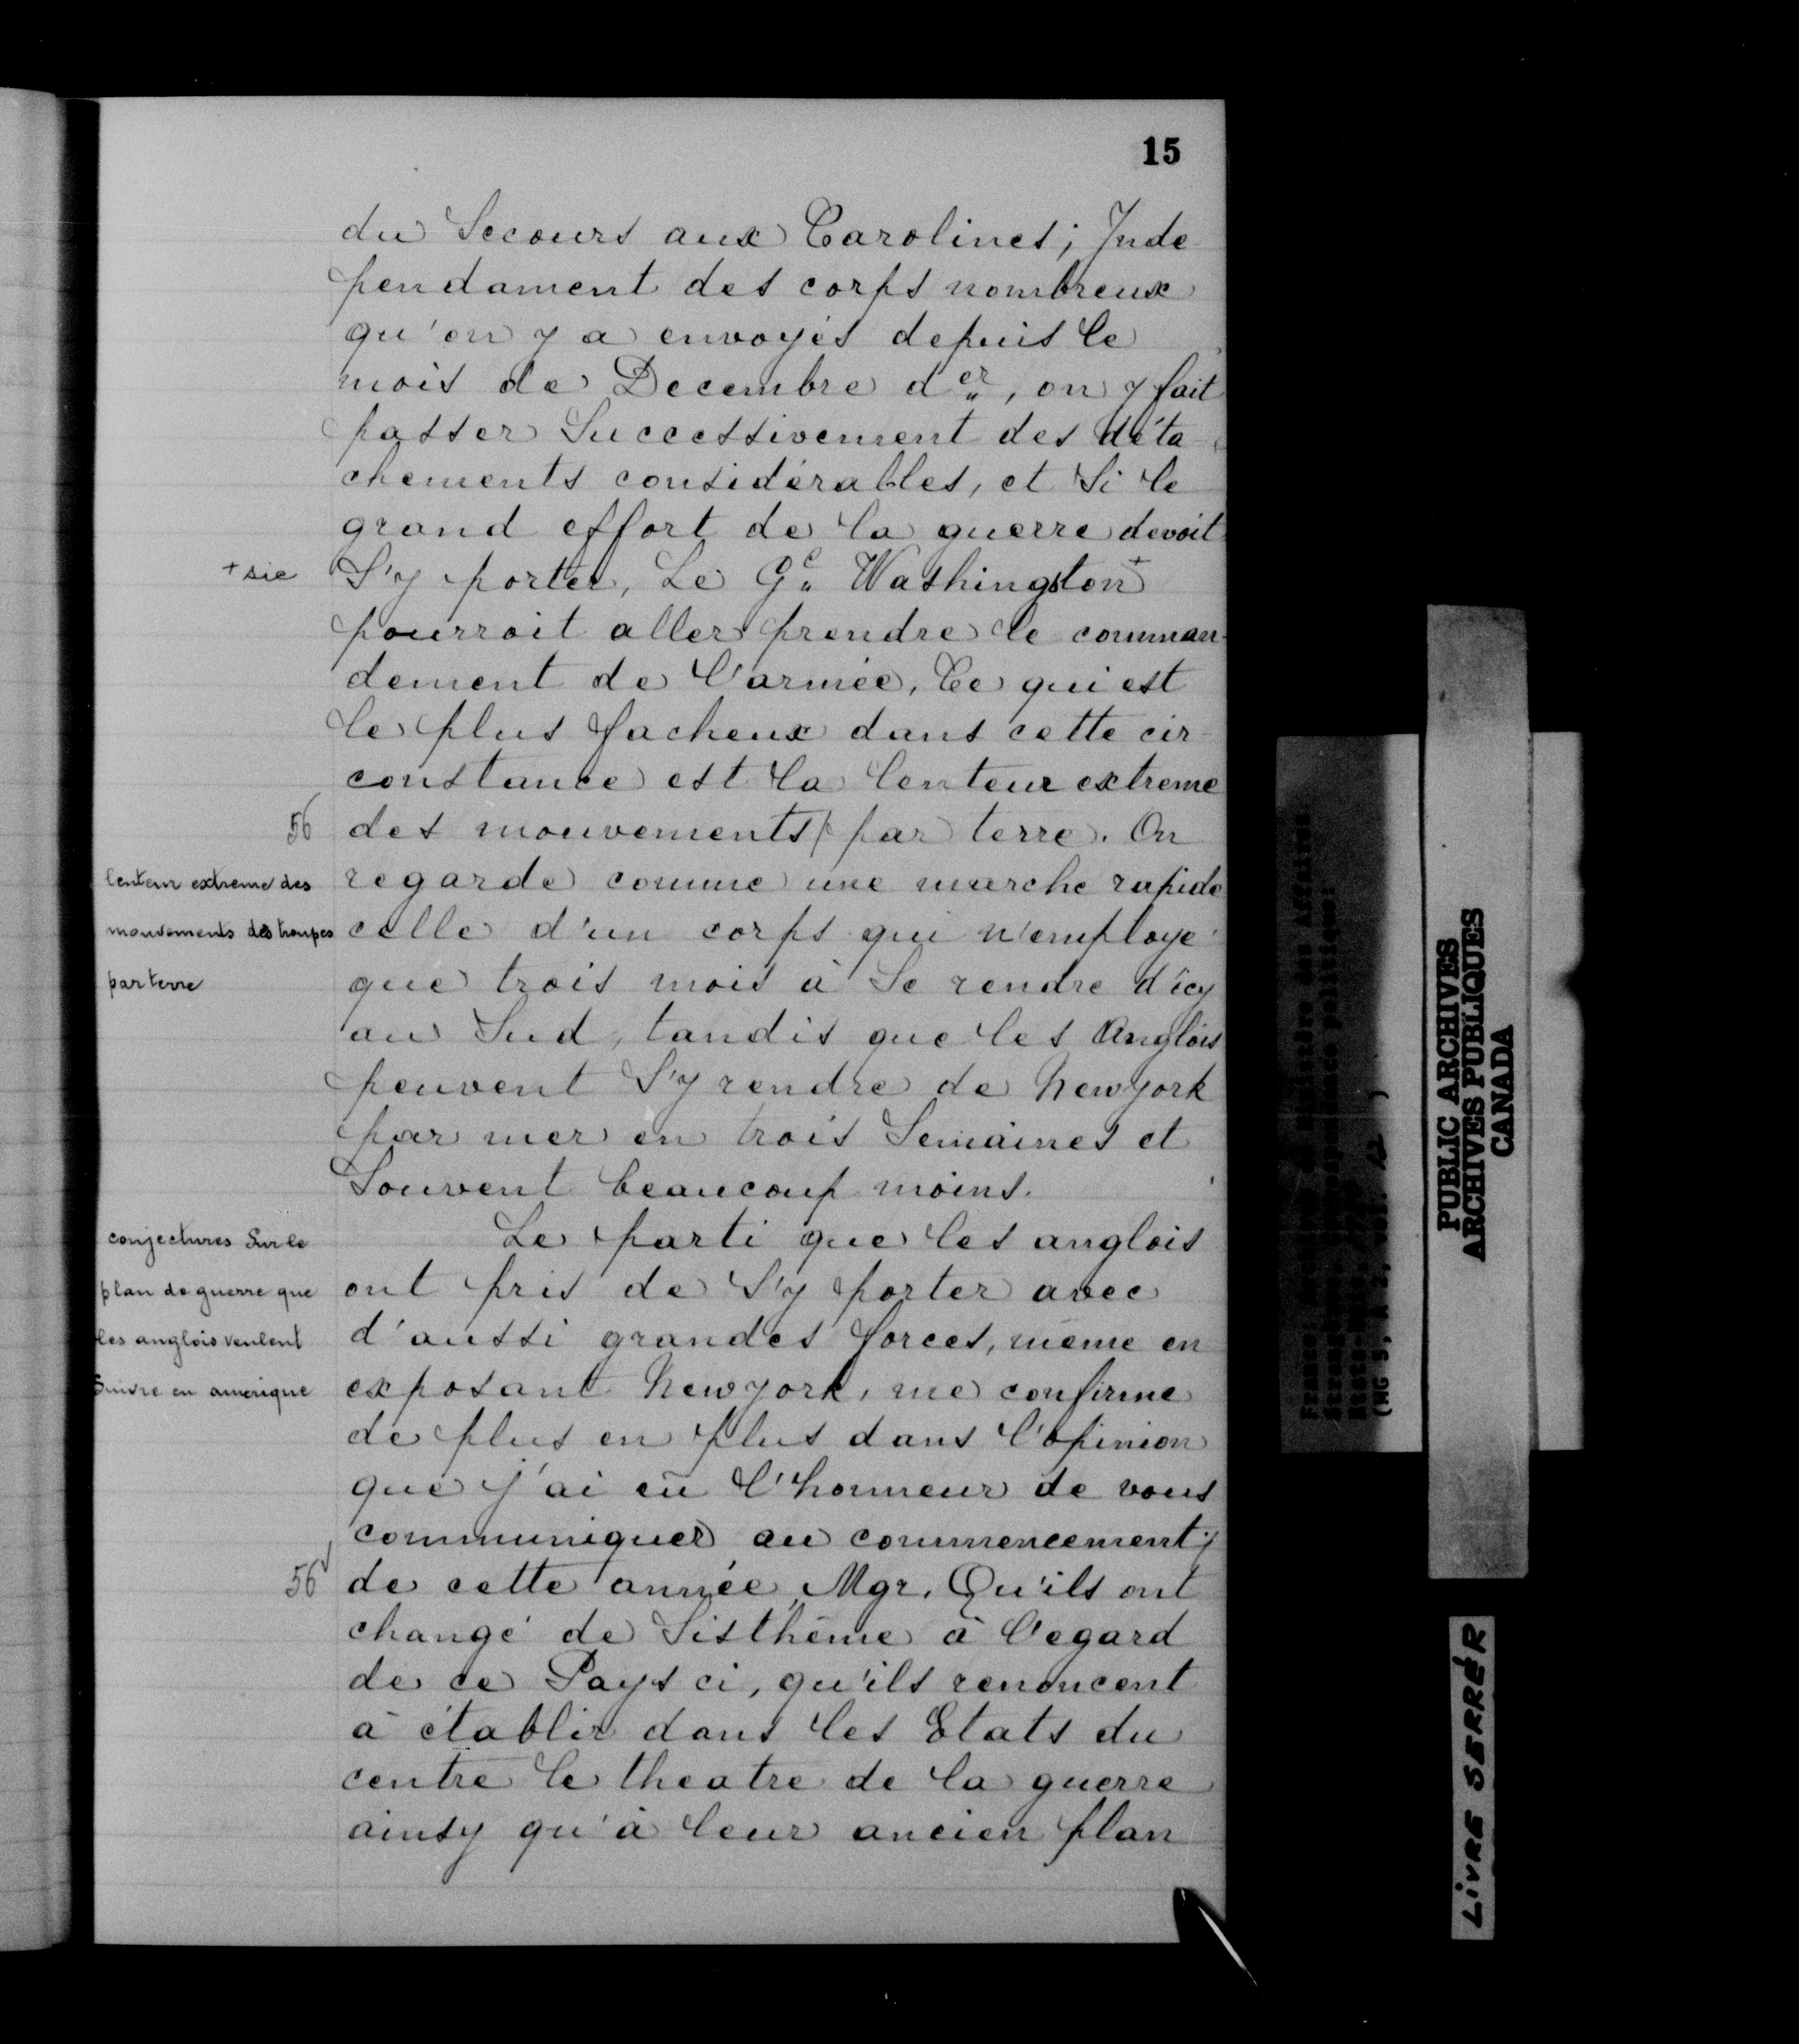 15
du Secours aux Carolines; Inde
pendament des corps nombreux
qu'on y a envoyés depuis le
mois de Decembre der, on y fait
passer Successivement des déta
chements considérables, et Si le
grand effort de la guerre devoit
+ sic
S'y porter, Le Gl Washingston+
pourroit aller prendre le comman-
dement de l'armée, Ce qui est
le plus facheux dans cette cir
constance est la lenteur extreme
56
des mouvements/ par terre. On
lenteur extreme des
mouvements des troupes
par terre
regarde comme une marche rapide
celle d'un corps qui n'employe
que trois mois à Se rendre d'icy
au Sud, tandis que les Anglois
peuvent S'y rendre de Newyork
par mer en trois Semaines et
Souvent beaucoup moins.
conjectures Sur le
plan de guerre que
les anglois veulent
Suivre en amerique
Le parti que les anglois
ont pris de S'y porter avec
d'aussi grandes forces, même en
exposant Newyork, me confirme
de plus en plus dans l'opinion
que j'ai eû l'honneur de vous
communiquer au commencement/
56
de cette année, Mgr, Qu'ils ont
changé de Sisthême à l'egard
de ce Pays ci, qu'ils renoncent
à établir dans les Etats du
centre le theatre de la guerre
ainsy qu'à leur ancien plan
PUBLIC ARCHIVES
ARCHIVES PUBLIQUES
CANADA
LIVRE SERRÉR